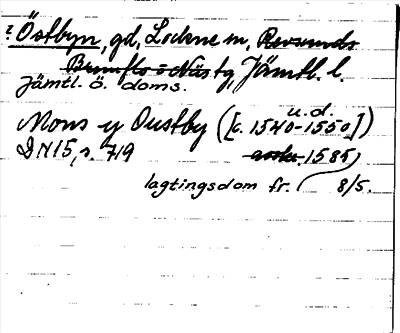 ? Östbyn, gd, Lockne sn, Revsunds
Brunflo o Näs tg, Jämtl. l.
Jämtl. ö. doms.
Mons y Oustby ([c. 1540-1550])
u.d.
DN 15, s. 719 1585
lagtingsdom fr. 8/5.